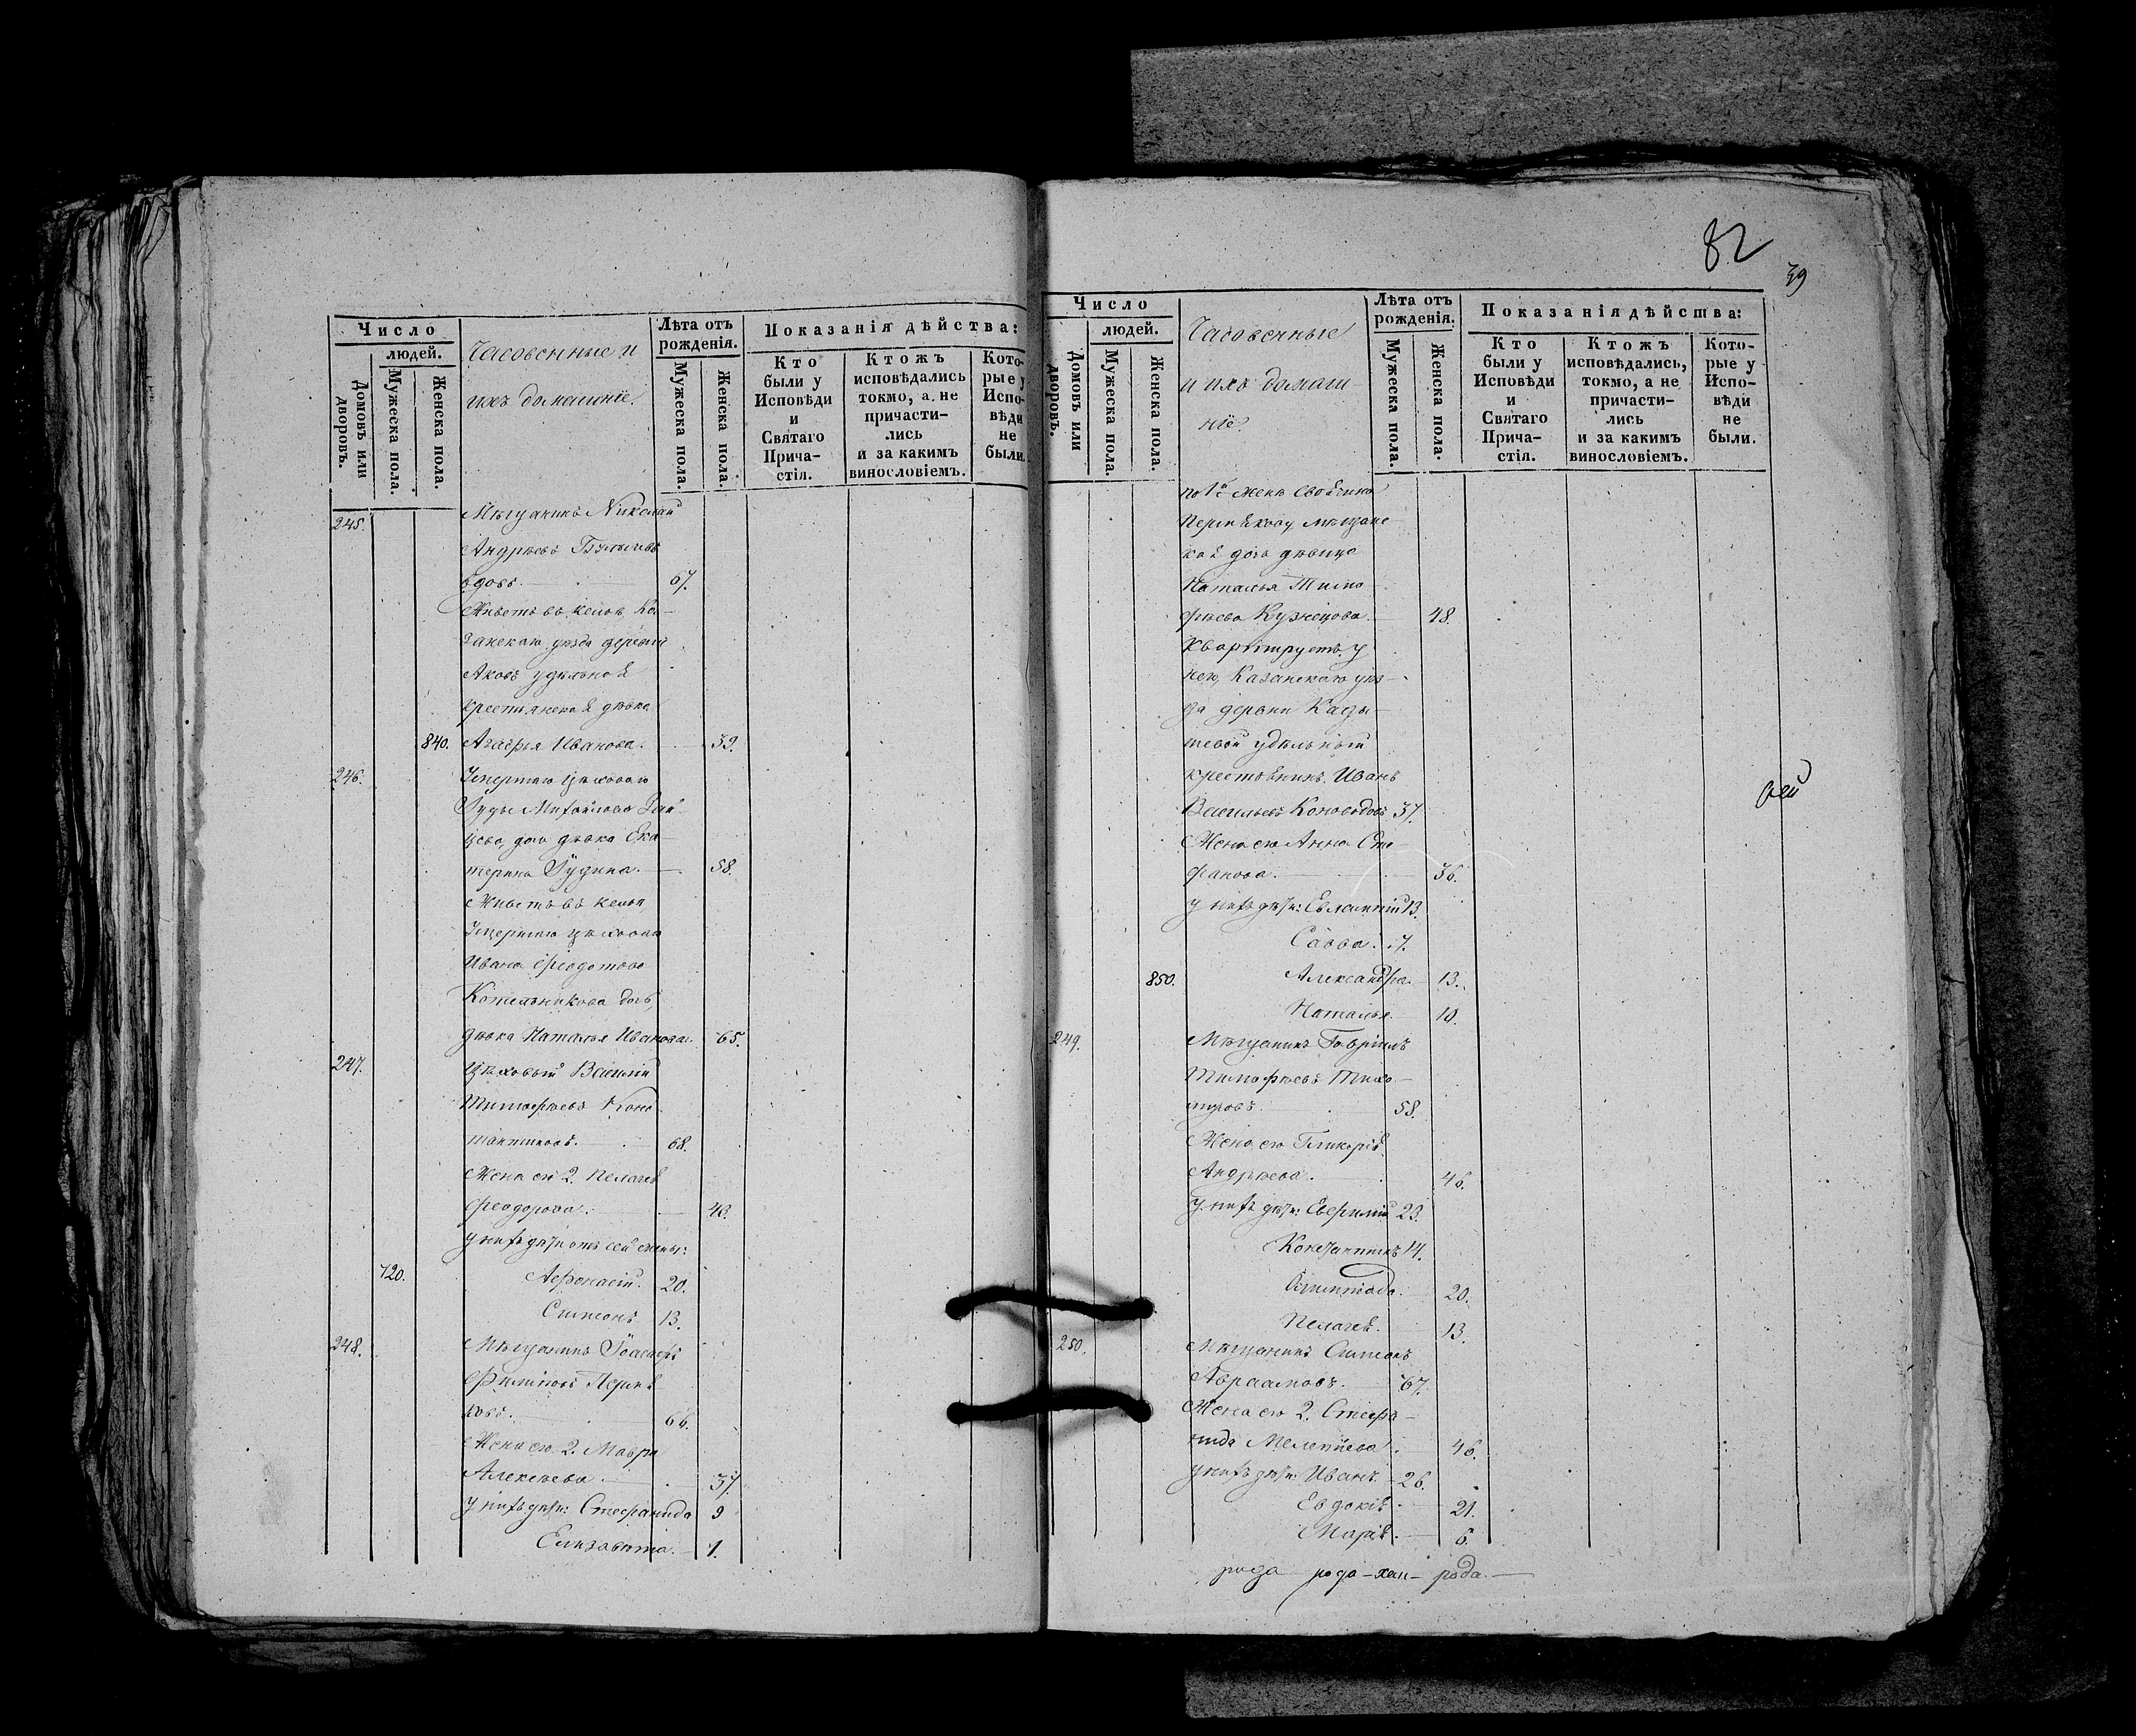 Число
людей.
Домовъ или дворовъ.
Мужеска пола.
Женска пола.
Часовенные и
ихъ домашнiе.
Лѣта отъ рожденiя.
Мужеска пола.
Женска пола.
Показанiя дѣйства:
Кто были у Исповѣди и Святаго Прича-стiя.
Ктожъ исповѣдались токмо, а не причасти-лись и за какимъ винословiемъ.
Кото-рые у Испо-вѣди не были.
245. Мѣщанинъ Николай
Андрѣевъ
вдовъ. 67.
Живетъ въ кельѣ Ка-
занскаго уѣзда деревни
Аковъ удѣльноя
крестьянская дѣвка
840. Агафья Иванова. 39.
246. Умершаго цѣховаго
Iуды Михайлова Зай-
цева, дочь дѣвка Ека-
терина Iудина. 58.
Живетъ въ кельѣ
Умершаго цѣховаго
Ивана Феодотова
Котельникова дочь,
дѣвка Наталья Иванова. 65.
247. Цѣховый Василiй
Тимофѣевъ Конс-
тантиновъ. 68.
Жена его 2. Пелагея
Феодорова. 43.
у нихъ дѣти отъ сей жены:
720. Афонасiй. 20.
Симеонъ. 13.
248. Мѣщанинъ
Филиповъ Першя-
ковъ. 66.
Жена его 2. Мавра
Алексѣева. 37.
У нихъ дѣти: Стефанида 9
Елизавета. 1.
82
39
Число
людей.
Домовъ или дворовъ.
Мужеска пола.
Женска пола.
Часовенные
и ихъ домаш
нiе.
Лѣта отъ рожденiя.
Мужеска пола.
Женска пола.
Показанiя дѣйства:
Кто были у Исповѣди и Святаго Прича-стiя.
Ктожъ исповѣдались, токмо, а не причасти-лись и за какимъ винословiемъ.
Кото-рые у Испо-вѣди не были.
по 1й женѣ
Першякову, мѣщанс
кая дочь дѣвица
Наталья Тимо
фѣева Кузнецова. 48.
Квартируетъ у
него, Казанскаго уѣз-
да деревни Кады-
шевой удѣльный
крестьянинъ Иванъ
Васильевъ Коноводовъ 37.
Жена его Анна Сте-
фанова. 36.
у нихъ дѣти: Евлампiй 13.
Савва. 7.
850. Александра. 13.
Наталья. 10.
249. Мѣщанинъ Гаврiилъ
Тимофѣевъ Тихо-
мировъ. 58.
Жена его Гликерiя
Андрѣева. 46.
У нихъ дѣти: Евфимiй 23.
Константинъ 14.
Олимпiада. 20.
Пелагея. 13.
250. Мѣщанинъ Симеонъ
Авраамовъ. 67.
Жена его 2. Стефа-
нида Мелентiева. 46.
у нихъ дѣти: Иванъ. 26.
Евдокiя. 21.
Марiя. 6.